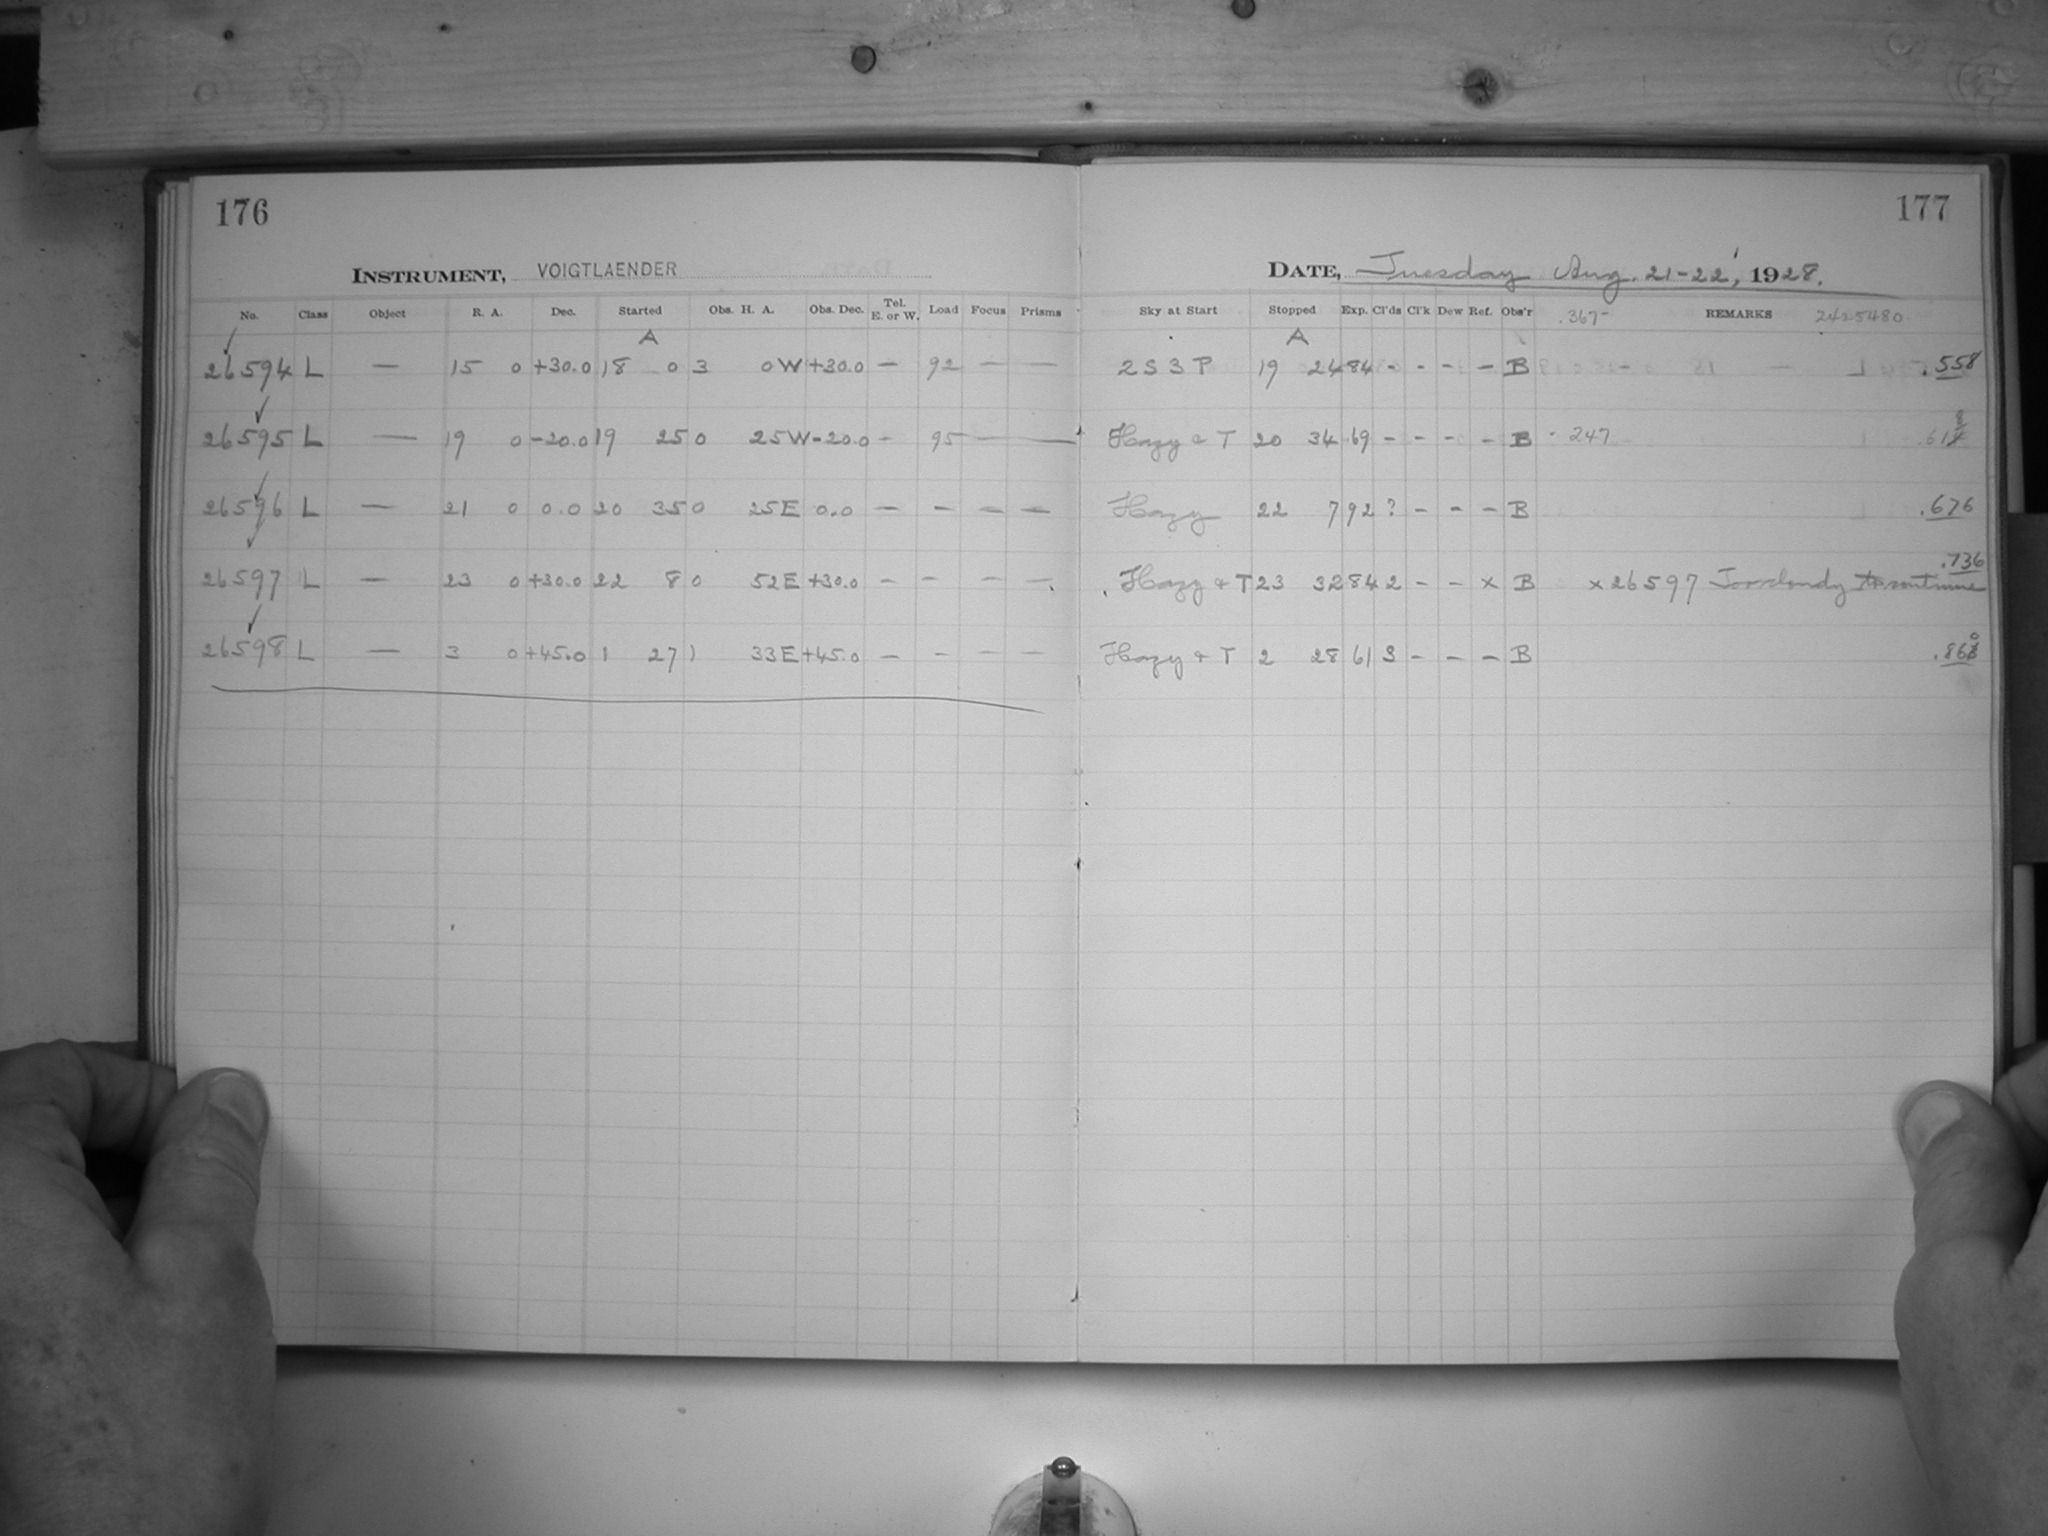 176
177
INSTRUMENT, VOIGTLAENDER
DATE, Tuesday Aug. 21-22, 1928.
No. Class Object R. A. Dec. Started Obs. H. A. Obs. Dec. Tel. E. or W. Load Focus Prisms Sky at Start Stopped Exp. Cl'ds Cl'k Dew Ref. Obs'r .367- REMARKS 2425480
A A
26594 L — 15 0 +30.0 18 0 3 0W +30.0 — 92 — — 2S3P 19 24 84 - - - - B .558
26595 L — 19 0 -20.0 19 25 0 25W -20.0 - 95 — — Hazy & T 20 34 69 - - - - B .247 .618
26596 L — 21 0 0.0 20 35 0 25E 0.0 — — — — Hazy 22 7 92 ? - - - B .676
26597 L — 23 0 +30.0 22 8 0 52E +30.0 — — — — Hazy & T 23 32 84 2 - - x B x 26597 Too cloudy to continue .736
26598 L — 3 0 +45.0 1 27 1 33E +45.0 — — — — Hazy & T 2 28 61 3 - - - B